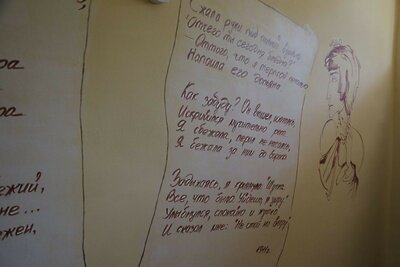 ра
ра
ежий,
не...
жен,
Сжала руки под темной вуалью
"Отчего ты сегодня бледна?"
— Оттого, что я терпкой печалью
Напоила его допьяна
Как забуду? Он вышел, шатаясь,
Искривился мучительно рот
Я сбежала, перил не касаясь,
Я бежала за ним до ворот
Задыхаясь, я крикнула: "Шутка
Все, что было. Уйдешь, я умру."
Улыбнулся спокойно и жутко
И сказал мне: "Не стой на ветру"
1911г.